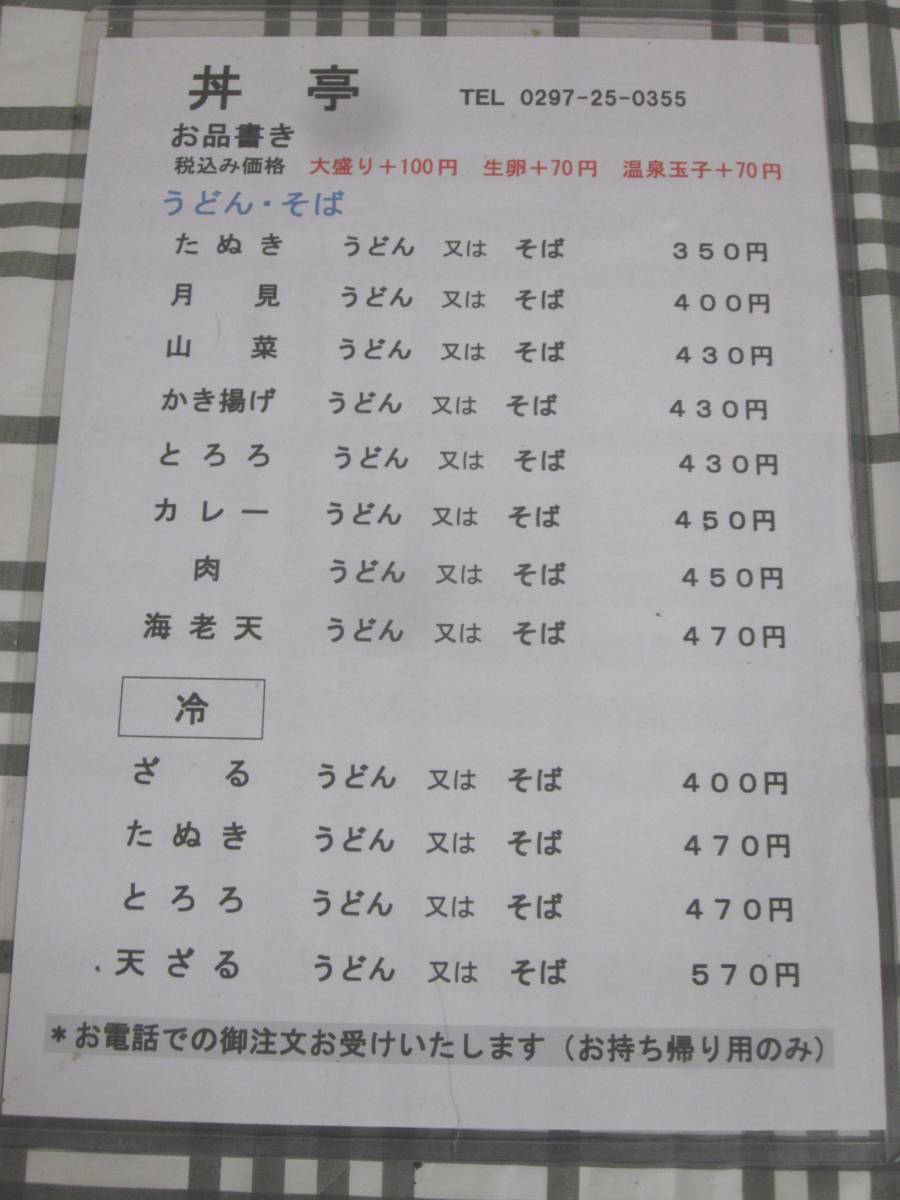 丼亭 TEL 0297-25-0355
お品書き
税込み価格 大盛り+100円 生卵+70円 温泉玉子+70円
うどん・そば
たぬき うどん 又は そば 350円
月見 うどん 又は そば 400円
山菜 うどん 又は そば 430円
かき揚げ うどん 又は そば 430円
とろろ うどん 又は そば 430円
カレー うどん 又は そば 450円
肉 うどん 又は そば 450円
海老天 うどん 又は そば 470円
冷
ざる うどん 又は そば 400円
たぬき うどん 又は そば 470円
とろろ うどん 又は そば 470円
天ざる うどん 又は そば 570円
*お電話での御注文お受けいたします(お持ち帰り用のみ)